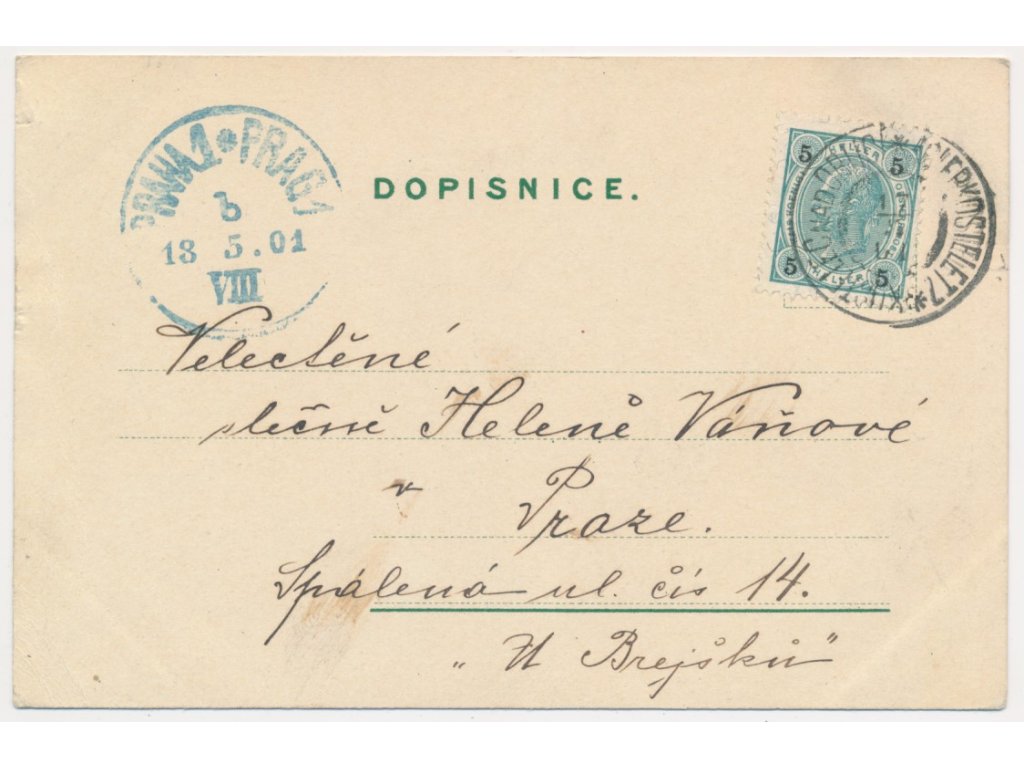 PRAHA 1 * PRAG 1
b
13 5.01
VIII
DOPISNICE.
5 HELLER 5
5 HELLER 5
Velectěné
slečně Heleně Váňové
v Praze.
Spálená ul. čís 14.
„U Brejšků"